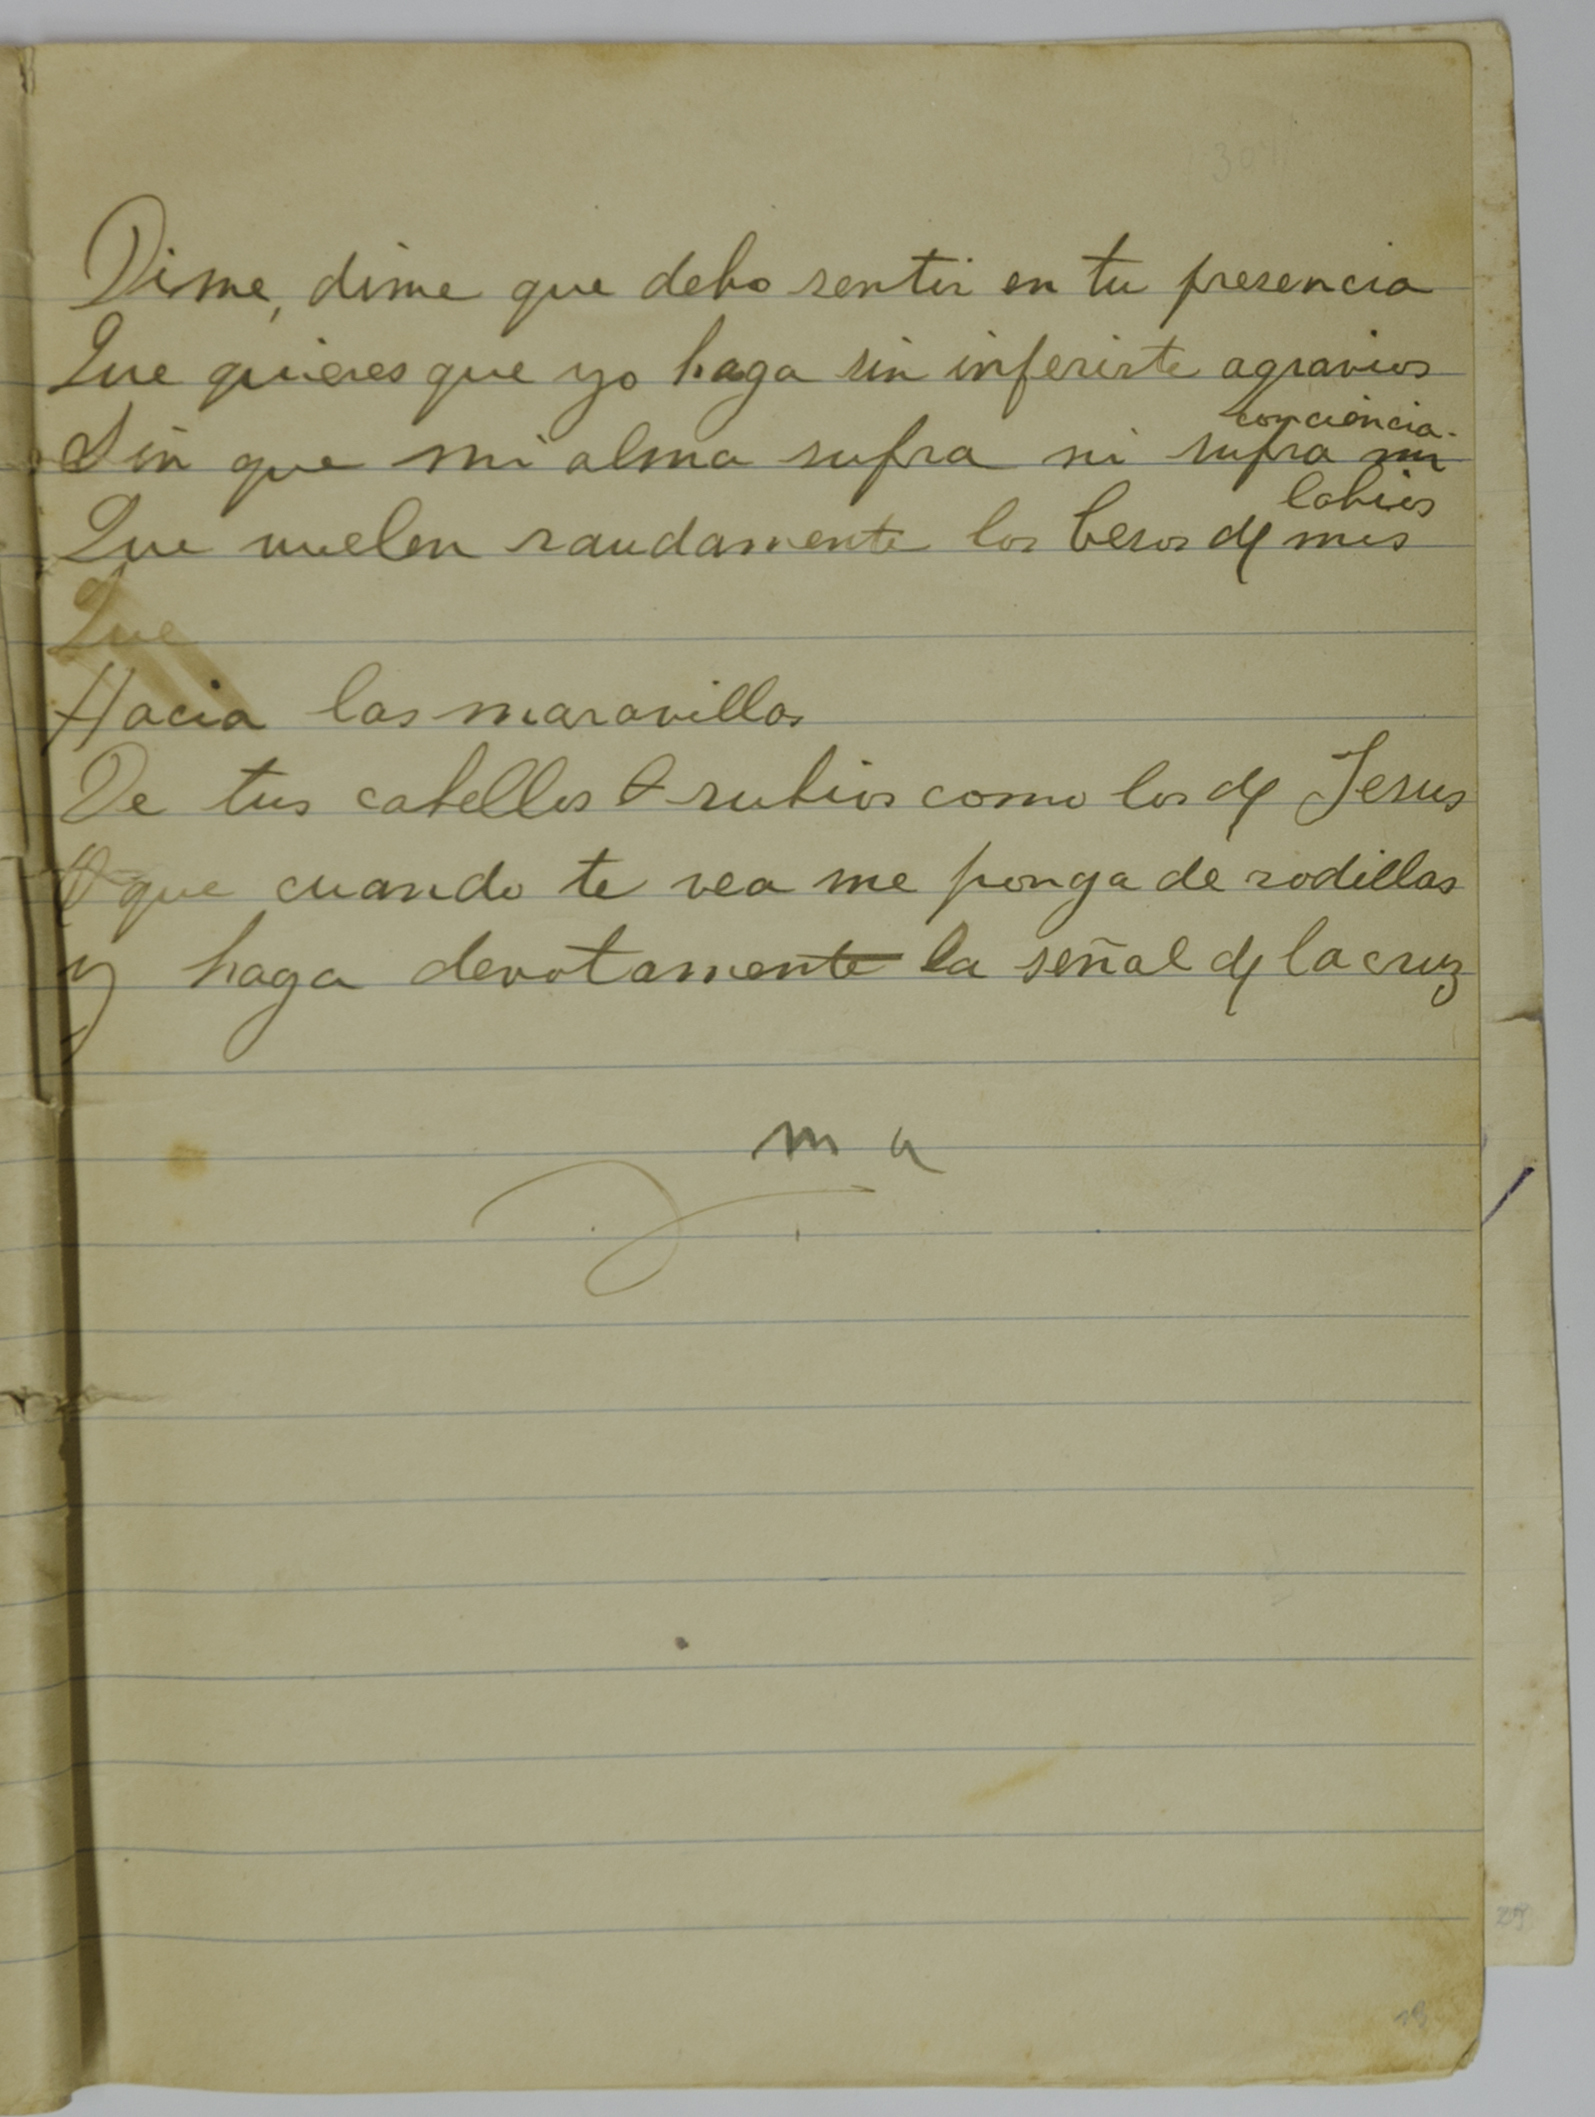 Dime, dime que debo sentir en tu presencia
Que quieres que yo haga sin inferirte agravios
Sin que mi alma sufra ni sufra mi conciencia.
Que vuelen raudamente los besos de mis labios
Que
Hacia las maravillas
De tus cabellos rubios como los de Jesus
O que cuando te vea me ponga de rodillas
y haga devotamente la señal de la cruz
m a